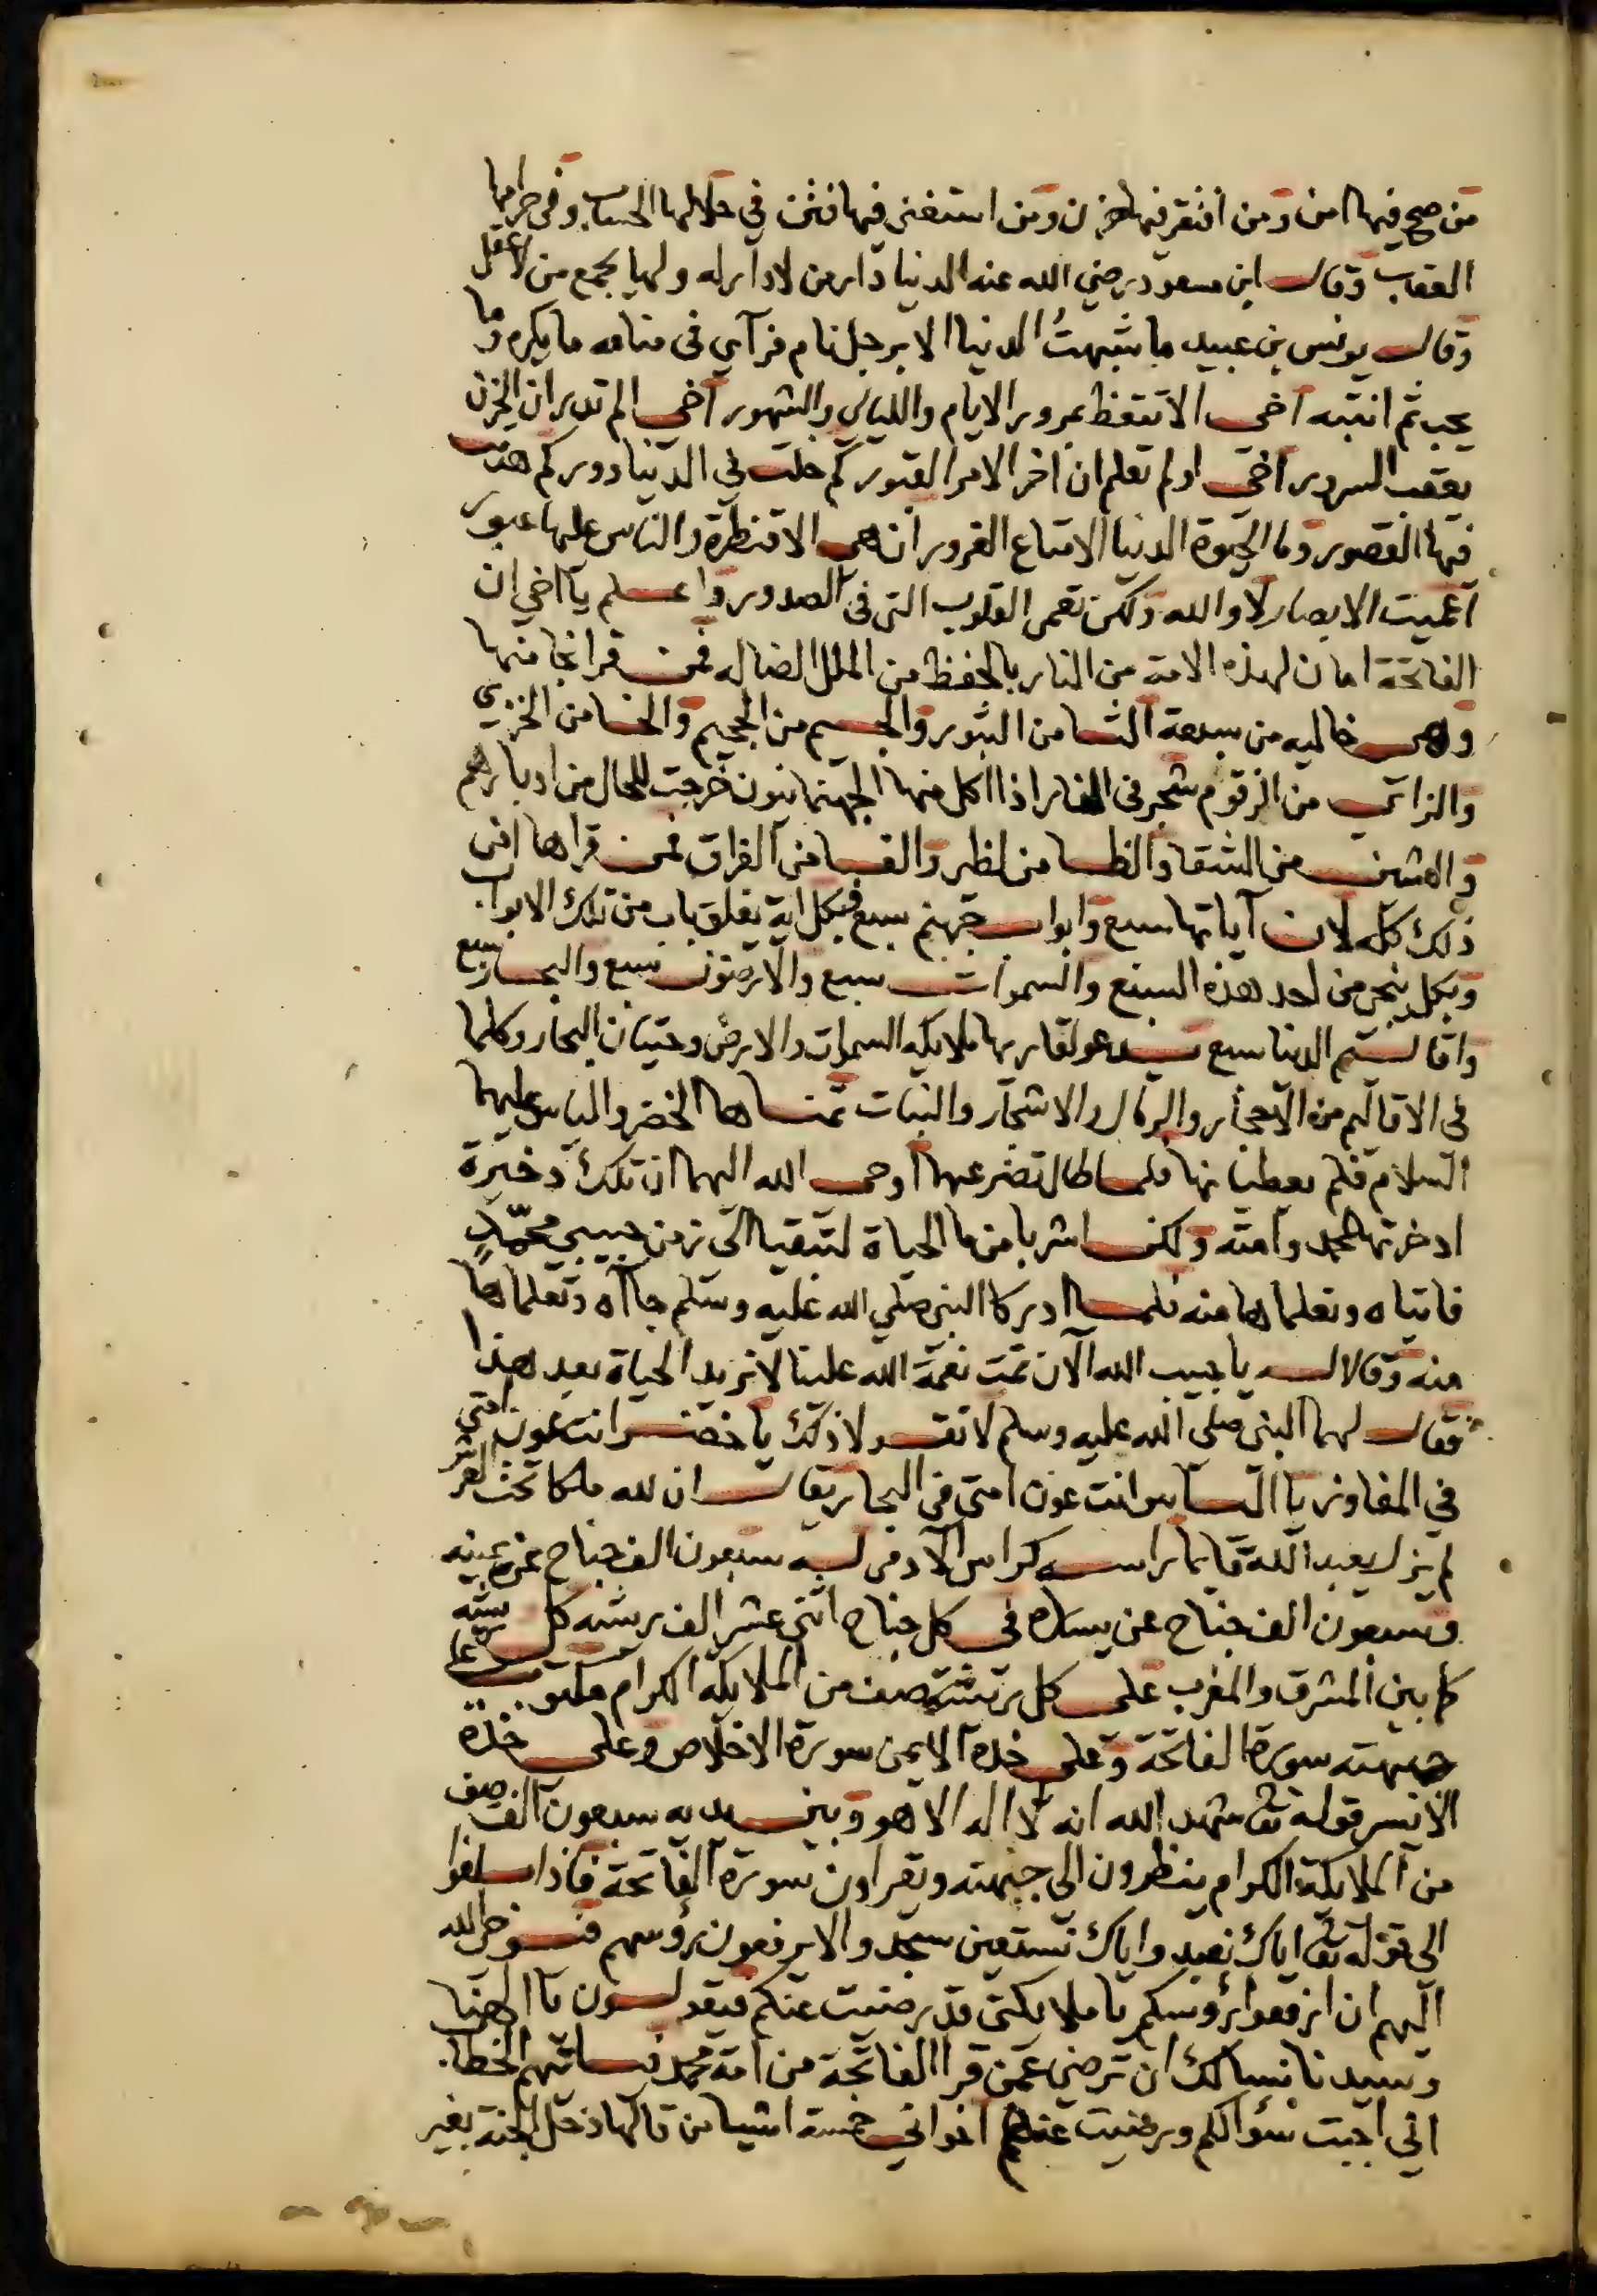 من صح فيها امن ومن افتقر فيها حزن ومن استغنى فيها فتن في حلالها الحساب وفي حرامها
العقاب وقال ابن مسعود رضي الله عنه الدنيا دار من لا دار له ولها يجمع من لا عقل
وقال يونس بن عبيد ما شبهتُ الدنيا الا برجل نام فرآى في منامه ما يكره وما
يحب ثم انتبه اخى الا تتعظ بمرور الايام والليالى والشهور اخى الم تدر ان الحزن
يعقب السرور اخى اولم تعلم ان اخر الامر القبور كم حلت في الدنيا دور كم هدت
فيها القصور وما الحيوة الدنيا الا متاع الغرور ان هى الا قنطرة والناس عليها عبور
اعميت الابصار لا والله ولكن تعمى القلوب التى فى الصدور واعلم يا اخي ان
الفاتحة امان لهذه الامة من النار بالحفظ من الملل الضاله فمن قرا نجا منها
وهى خاليه من سبعة الثا من الثبور والجيم من الجحيم والخا من الخزي
والزاى من الزقوم شجر فى النار اذا اكل منها الجهنميون خرجت للحال من ادبارهم
والشين من الشقا والظا من لظى والفا من الفراق فمن قراها امن
ذلك كله لان آياتها سبع وابواب جهنم سبع فبكل اية يغلق باب من تلك الابواب
وبكل ينجى من احد هذه السبع والسموات سبع والارضون سبع والبحار سبع
واقاليم الدنيا سبع يدعو لقاريها ملايكة السموات والارض وحيتان البحار وكلما
فى الاقاليم من الاحجار والرمال والاشجار والنبات تمناها الخضر والياس عليهما
السلام فلم يعطيانها فلما طال تضرعهما اوحى الله اليهما ان تلك ذخيرة
ادخرتها لمحمد وامته ولكن اشربا من ما الحياة لتبقيا الى زمن حبيبي محمدٍ
فاتياه وتعلماها منه فلما ادركا النبى صلى الله عليه وسلم جاآه وتعلماها
منه وقالا يا حبيب الله الآن تمت نعمة الله علينا لا نريد الحياة بعد هذا
فقال لهما النبى صلى الله عليه وسلم لا تقولا ذلك يا خضر انت عون امتى
في المفاوز يا الياس انت عون امتى فى البحار يقال ان لله ملكا تحت العرش
لم يزل يعبد الله قايما راسه كراس الآدمى له سبعون الف جناح عن يمينه
وسبعون الف جناح عن يساره فى كل جناح اثنى عشر الف ريشه كل ريشه
كما بين المشرق والمغرب على كل ريشة صف من الملايكة الكرام مكتوب على
جبهته سورة الفاتحة وعلى خده الايمن سورة الاخلاص وعلى خده
الايسر قوله تعا شهد الله انه لا اله الا هو وبين يديه سبعون الف صف
من الملايكة الكرام ينظرون الى جبهته ويقراون سورة الفاتحة فاذا بلغوا
الى قوله تعا اياك نعبد واياك نستعين سجدوا لا يرفعون رؤسهم فيوحى الله
اليهم ان ارفعوا رؤسكم يا ملايكتى قد رضيت عنكم فيقولون يا الهنا
وسيدنا نسالك ان ترضى عمن قرا الفاتحة من امة محمد فياتيهم الخطاب
انى اجبت سؤالكم ورضيت عنهم اخوانى خمسة اشيا من قالها دخل الجنة بغير